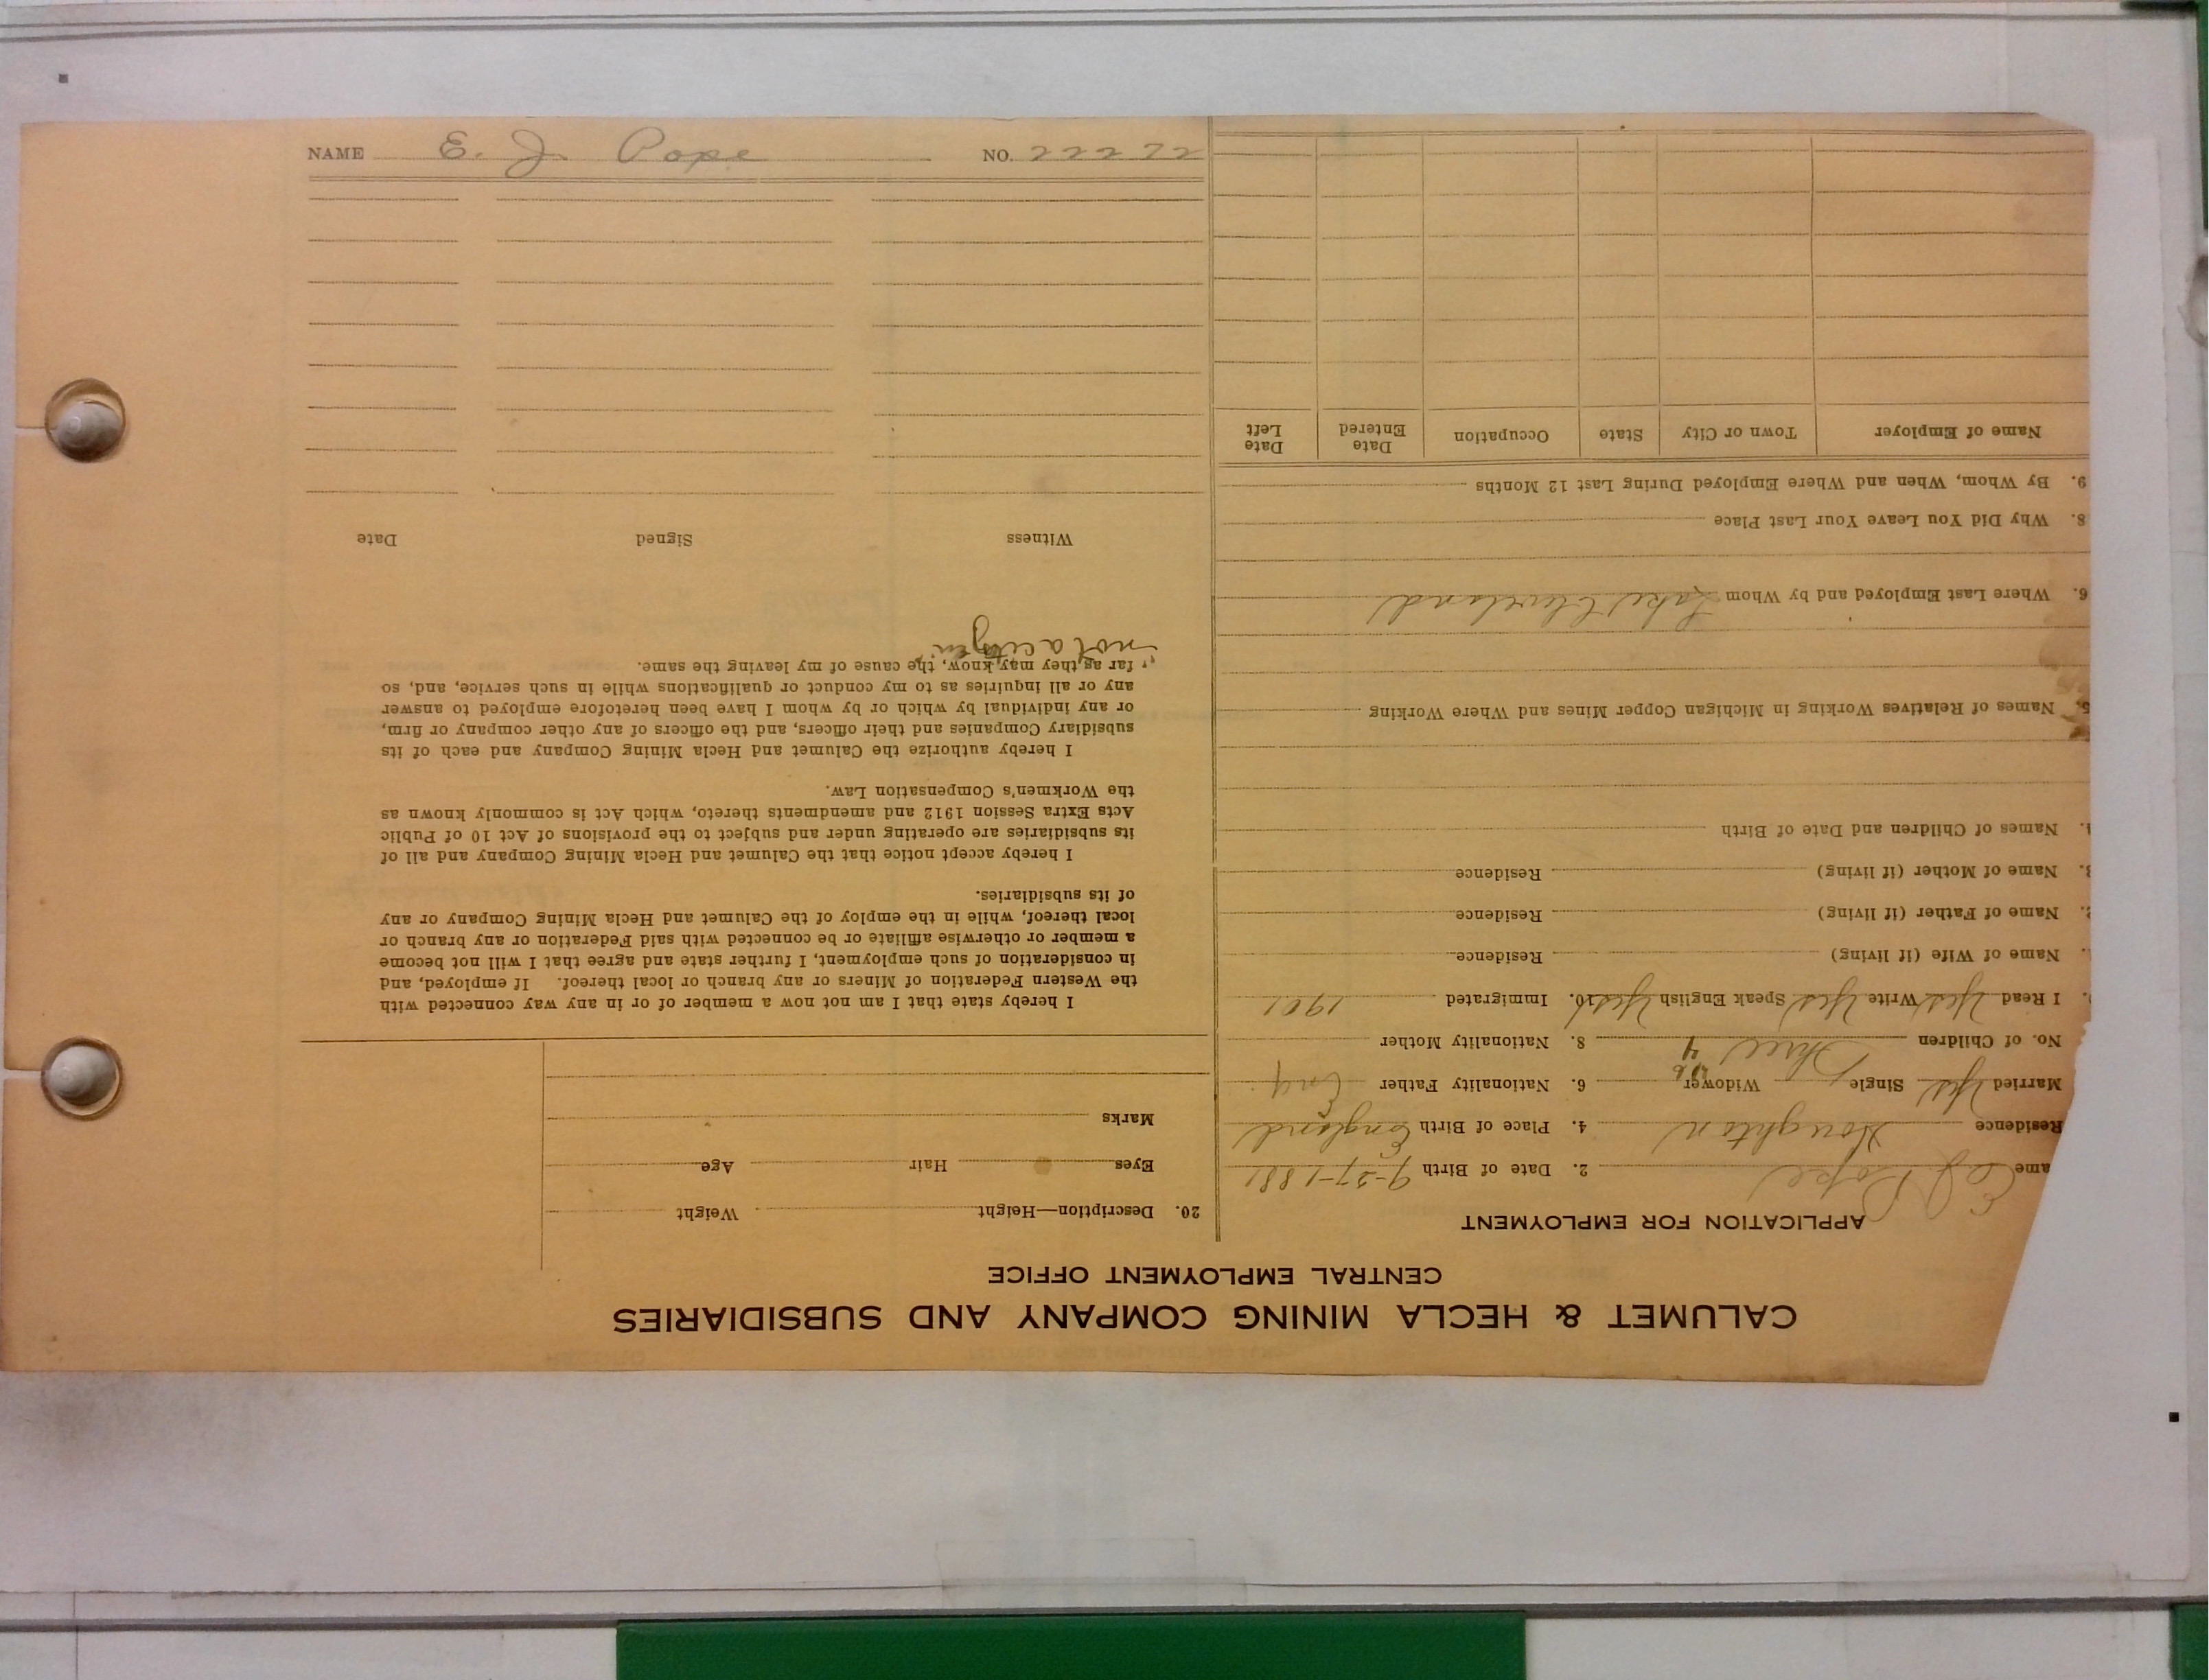 CALUMET & HECLA MINING COMPANY AND SUBSIDIARIES
CENTRAL EMPLOYMENT OFFICE
APPLICATION FOR EMPLOYMENT
ame E J Pope 2. Date of Birth 9-27-1881
Residence Houghton 4. Place of Birth England
Married Yes Single Widower 6. Nationality Father Eng
No. of Children Three 4 8. Nationality Mother
I Read Yes Write Yes Speak English Yes 10. Immigrated 1901
Name of Wife (if living) Residence
2. Name of Father (if living) Residence
3. Name of Mother (if living) Residence
4. Names of Children and Date of Birth
5. Names of Relatives Working in Michigan Copper Mines and Where Working
6. Where Last Employed and by Whom Lake Cleveland
8. Why Did You Leave Your Last Place
9. By Whom, When and Where Employed During Last 12 Months
Name of Employer Town or City State Occupation Date Entered Date Left
20. Description—Height Weight
Eyes Hair Age
Marks
I hereby state that I am not now a member of or in any way connected with
the Western Federation of Miners or any branch or local thereof. If employed, and
in consideration of such employment, I further state and agree that I will not become
a member or otherwise affiliate or be connected with said Federation or any branch or
local thereof, while in the employ of the Calumet and Hecla Mining Company or any
of its subsidiaries.
I hereby accept notice that the Calumet and Hecla Mining Company and all of
its subsidiaries are operating under and subject to the provisions of Act 10 of Public
Acts Extra Session 1912 and amendments thereto, which Act is commonly known as
the Workmen's Compensation Law.
I hereby authorize the Calumet and Hecla Mining Company and each of its
subsidiary Companies and their officers, and the officers of any other company or firm,
or any individual by which or by whom I have been heretofore employed to answer
any or all inquiries as to my conduct or qualifications while in such service, and, so
far as they may know, the cause of my leaving the same.
not a citizen
Witness Signed Date
NAME E. J. Pope NO. 22272